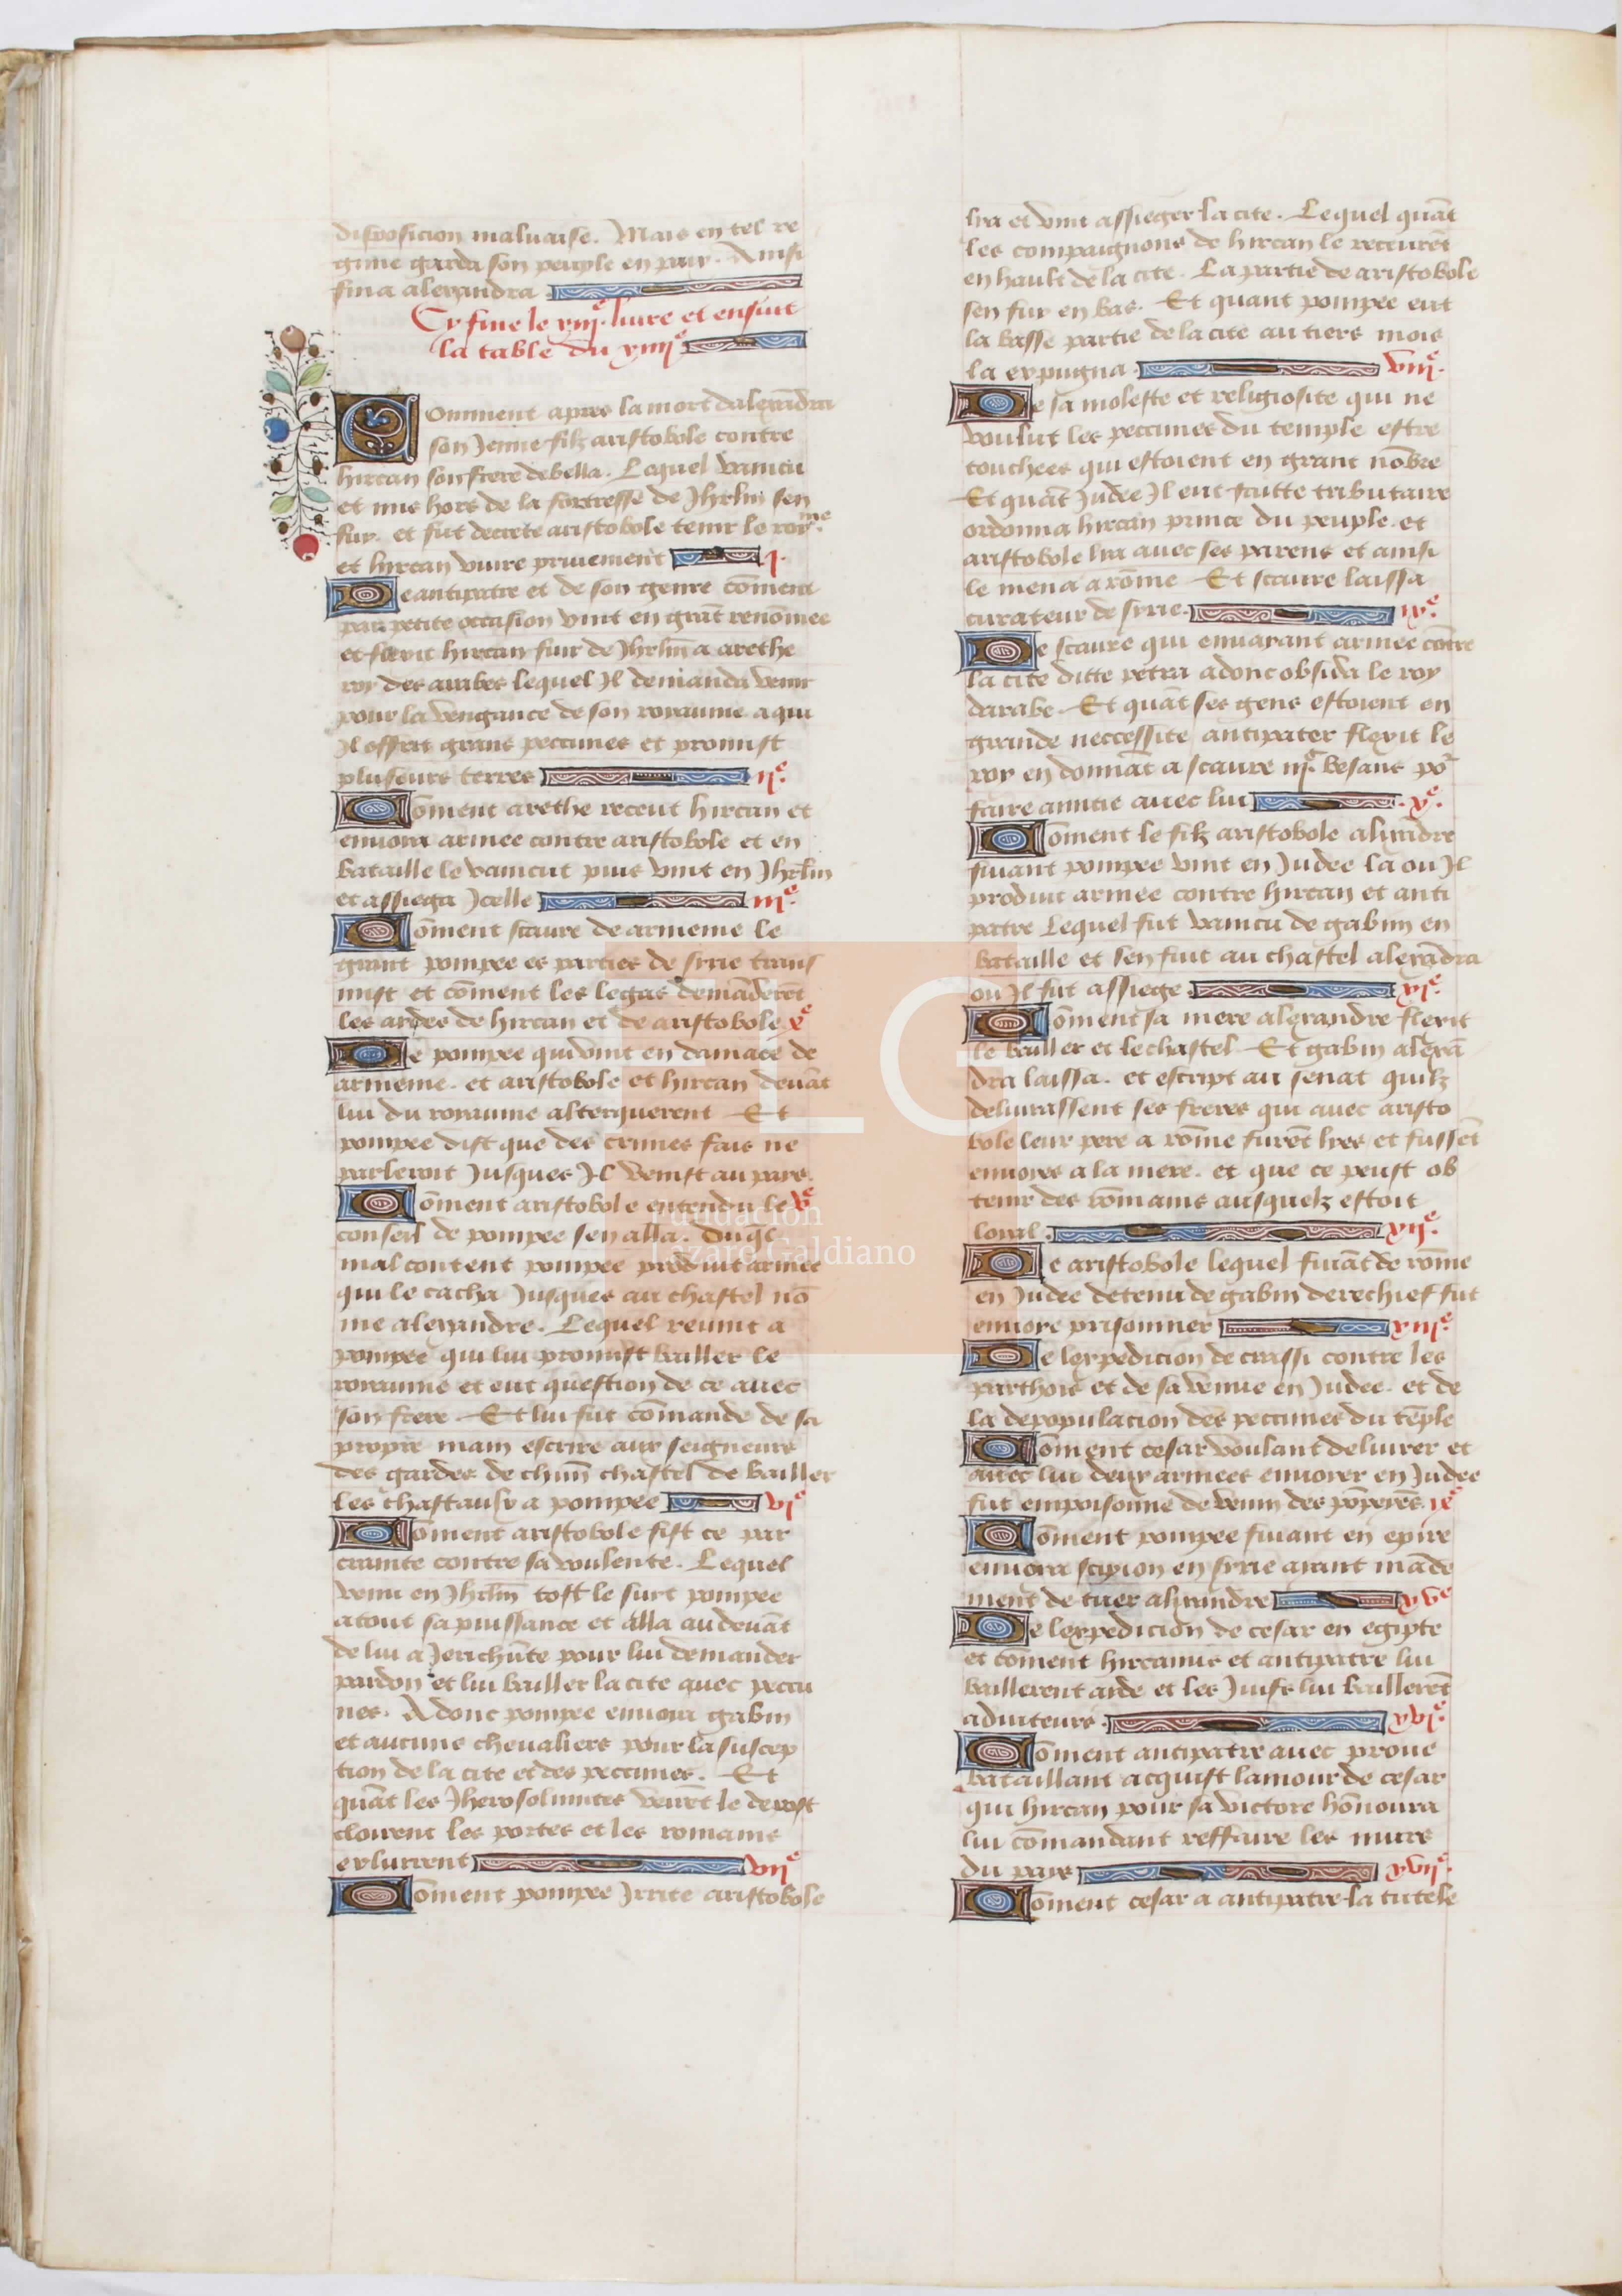 disposicion maluaise. Mais en tel re
gime garda son peuple en paix. Ainsi
fina alexandra
Cy fine le xiiie. liure et ensuit
la table du xiiiie
Comment apres la mort dalexādra
son Jenne filz aristobole contre
hircan son frere debella. Lequel vaincu
et mis hors de la fortresse de Jhrlm sen
fuy. et fut decrete aristobole tenir le roy.me
et hircan viure priuement j.
De antipatre et de son genre cōment
par petite occasion vint en grāt renōmee
et fairit hircan fuir de Jhrlm a arethe
roy des arabes lequel Jl demanda venir
pour la vengance de son royaume a qui
Jl offrit grans peccunes et promist
pluseurs terres ije.
Cōment arethe receut hircan et
enuoia armee contre aristobole et en
bataille le vaincut puis vint en Jhrlm
et assiega Jcelle iije.
Cōment scaure de armenie le
grant pompee es parties de syrie trans
mist et cōment les legas demāderēt
les aides de hircan et de aristobole xe
De pompee qui vint en damace de
armenie. et aristobole et hircan deuāt
lui du royaume alterquerent Et
pompee dist que des crimes fais ne
parleroit Jusques Jl venist au pays.
Cōment aristobole entendu le ve
conseil de pompee sen alla. Duql
mal content pompee produit armee
qui le cacha Jusques au chastel nō
me alexandre. Lequel reuint a
pompee qui lui promist bailler le
royaume et eut question de ce auec
son frere. Et lui fut cōmande de sa
propre main escrire aux seigneurs
des gardes de chūn chastel de bailler
les chastaulx a pompee vje
Cōment aristobole fist ce par
crainte contre sa voulente. Lequel
venu en Jhrlm tost le suit pompee
atout sa puissance et alla au deuāt
de lui a Jerichūte pour lui demander
pardon et lui bailler la cite auec peccu
nes. Adonc pompee enuoia gabin
et aucuns cheualiers pour la suscep
tion de la cite et des peccunes. Et
quāt les Jherosolimites veirēt le depost
cloirent les portes et les romains
exlurrent vije
Cōment pompee Jrrite aristobole
lya et vint assieger la cite. Lequel quāt
les compaignons de hircan le receurēt
en hault de la cite. La partie de aristobole
sen fuy en bas. Et quant pompee eut
la basse partie de la cite au tiers mois
la expugna. viije.
De sa moleste et religiosite qui ne
voulut les peccunes du temple estre
touchees qui estoient en grant nōbre
Et quāt Judee Jl eut faitte tributaire
ordonna hircan prince du peuple. et
aristobole lya auec ses parens et ainsi
le mena a rōme Et scaure laissa
curateur de syrie. ixe.
De scaure qui enuaiant armee cōtre
la cite ditte petra adonc obsida le roy
darabe. Et quāt ses gens estoient en
grande neccessite antipater flexit le
roy en donnāt a scaure iije besans por
faire amitie auec lui xe.
Cōment le filz aristobole alixādre
suiant pompee vint en Judee la ou Jl
produit armee contre hircan et anti
patre Lequel fut vaincu de gabin en
bataille et sen fuit au chastel alexādra
ou Jl fut assiege. xje.
Cōment sa mere alexandre flexit
le bailler et le chastel. Et gabin alexā
dra laissa. et escript au senat quilz
deliurassent ses freres qui auec aristo
bole leur pere a rōme furēt lyes et fussēt
enuoies a la mere. et que ce peust ob
tenir des rōmains ausquelz estoit
loyal. xije.
De aristobole lequel fuiāt de rōme
en Judee detenu de gabin derechief fut
enuoie prisonnier xiije.
De lexpedicion de crassi contre les
parthois et de sa venue en Judee. et de
la depopulacion des peccunes du tēple
Cōment cesar voulant deliurer et
auec lui deux armees enuoier en Judee
fut empoisonne de venin des pōpeyēs. ixe
Cōment pompee fuiant en epire
enuoia scipion en syrie aiant māde
ment de tuer alixandre xve
De lexpedicion de cesar en egipte
et cōment hircanus et antipatre lui
baillerent aide et les Juifs lui baillerēt
aduiteurs. xvje.
Cōment antipatre auec proue
bataillant acquist lamour de cesar
qui hircan pour sa victore hōnoura
lui cōmandant reffaire les murs
du pays xvije.
Cōment cesar a antipatre la tutele
FLG
Fundación
Lázaro Galdiano